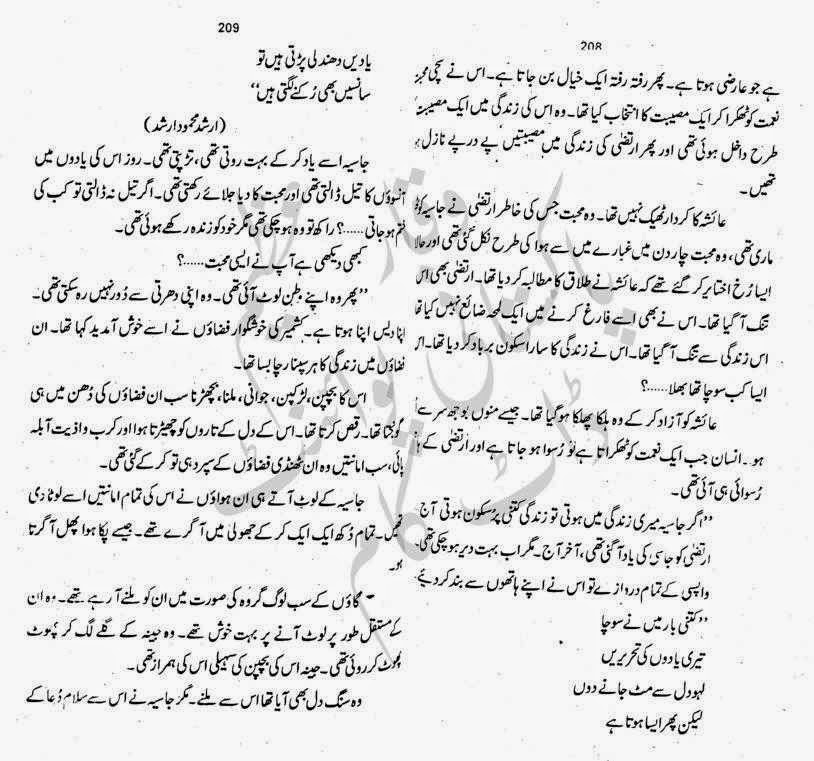 208
ہے جو عارضی ہوتا ہے۔ پھر رفتہ رفتہ ایک خیال بن جاتا ہے۔ اس نے سچی
نعمت کو ٹھکرا کر ایک مصیبت کا انتخاب کیا تھا۔ وہ اس کی زندگی میں ایک مصیبت
طرح داخل ہوئی تھی اور پھر ارتضیٰ کی زندگی میں مصیبتیں پے درپے نازل
تھیں۔
عائشہ کا کردار ٹھیک نہیں تھا۔ وہ محبت جس کی خاطر ارتضیٰ نے جاسیہ کو
ماری تھی، وہ محبت چار دن میں غبارے میں سے ہوا کی طرح نکل گئی تھی اور
ایسا رُخ اختیار کر گئے تھے کہ عائشہ نے طلاق کا مطالبہ کر دیا تھا۔ ارتضیٰ بھی اس
تنگ آ گیا تھا۔ اس نے بھی اسے فارغ کرنے میں ایک لمحہ ضائع نہیں کیا تھا
اس زندگی سے تنگ آ گیا تھا۔ اس نے زندگی کا سارا سکون برباد کر دیا تھا۔
ایسا کب سوچا تھا بھلا......؟
عائشہ کو آزاد کر کے وہ ہلکا پھلکا ہو گیا تھا۔ جیسے منوں بوجھ سر سے
ہو۔ انسان جب ایک نعمت کو ٹھکراتا ہے تو رُسوا ہو جاتا ہے اور ارتضیٰ کے
رُسوائی ہی آئی تھی۔
’’اگر جاسیہ میری زندگی میں ہوتی تو زندگی کتنی پُرسکون ہوتی آج
ارتضیٰ کو جاسی کی یاد آ گئی تھی، آخر آج۔ مگر اب بہت دیر ہو چکی تھی۔
واپسی کے تمام دروازے تو اس نے اپنے ہاتھوں سے بند کر دیئے
’’کتنی بار میں نے سوچا
تیری یادوں کی تحریریں
لہو دل سے مٹ جانے دوں
لیکن پھر ایسا ہوتا ہے
209
یادیں دھندلی پڑتی ہیں تو
سانسیں بھی رُکنے لگتی ہیں‘‘
(ارشد محمود ارشد)
جاسیہ اسے یاد کر کے بہت روتی تھی، تڑپتی تھی۔ روز اس کی یادوں میں
آنسوؤں کا تیل ڈالتی تھی اور محبت کا دیا جلائے رکھتی تھی۔ اگر تیل نہ ڈالتی تو کب کی
ختم ہو جاتی......؟ راکھ تو وہ ہو چکی تھی مگر خود کو زندہ رکھے ہوئی تھی۔
کبھی دیکھی ہے آپ نے ایسی محبت......؟
’’پھر وہ اپنے وطن لوٹ آئی تھی۔ وہ اپنی دھرتی سے دُور نہیں رہ سکتی تھی۔
اپنا دیس اپنا ہوتا ہے۔ کشمیر کی خوشگوار فضاؤں نے اسے خوش آمدید کہا تھا۔ ان
فضاؤں میں زندگی کا ہر سپنا رچا بسا تھا۔
اس کا بچپن، لڑکپن، جوانی، ملنا، بچھڑنا سب ان فضاؤں کی دُھن میں ہی
گونجتا تھا۔ رقص کرتا تھا۔ اس کے دل کے تاروں کو چھیڑتا ہوا اور کرب و اذیت آبلہ
پائی، سب امانتیں وہ ان ٹھنڈی فضاؤں کے سپرد ہی تو کر کے گئی تھی۔
جاسیہ کے لوٹ آتے ہی ان ہواؤں نے اس کی تمام امانتیں اسے لوٹا دی
تھیں۔ تمام دُکھ ایک ایک کر کے جھولی میں آ گرے تھے۔ جیسے پکا ہوا پھل آ گرتا
ہو۔
گاؤں کے سب لوگ گروہ کی صورت میں ان کو ملنے آ رہے تھے۔ وہ ان
کے مستقل طور پر لوٹ آنے پر بہت خوش تھے۔ وہ حبینہ کے گلے لگ کر پھوٹ
پھوٹ کر روئی تھی۔ حبینہ اس کی بچپن کی سہیلی اس کی ہمراز تھی۔
وہ سنگ دل بھی آیا تھا اس سے ملنے۔ مگر جاسیہ نے اس سے سلام دُعا کے